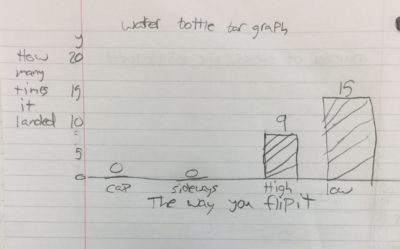 water bottle bar graph
y
How many times it landed
20
15
10
5
0
0
0
9
15
cap
sideways
High
low
The way you flip it